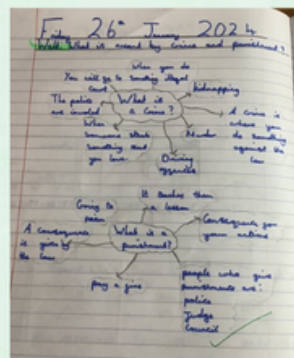 Friday 26th January 2024
Walt: What is meant by Crime and punishment?
When you do
something illegal
You will go to
Court
Kidnapping
The police
are involved
What is
a Crime?
A crime is
where you
do something
against the
law
When
someone steals
something that
you love
Murder
Driving
It teaches them
a lesson
Going to
Consequences for
your actions
A consequence
is given by
the law
What is a
punishment?
pay a fine
people who give
punishments are:
police
Judge
Council